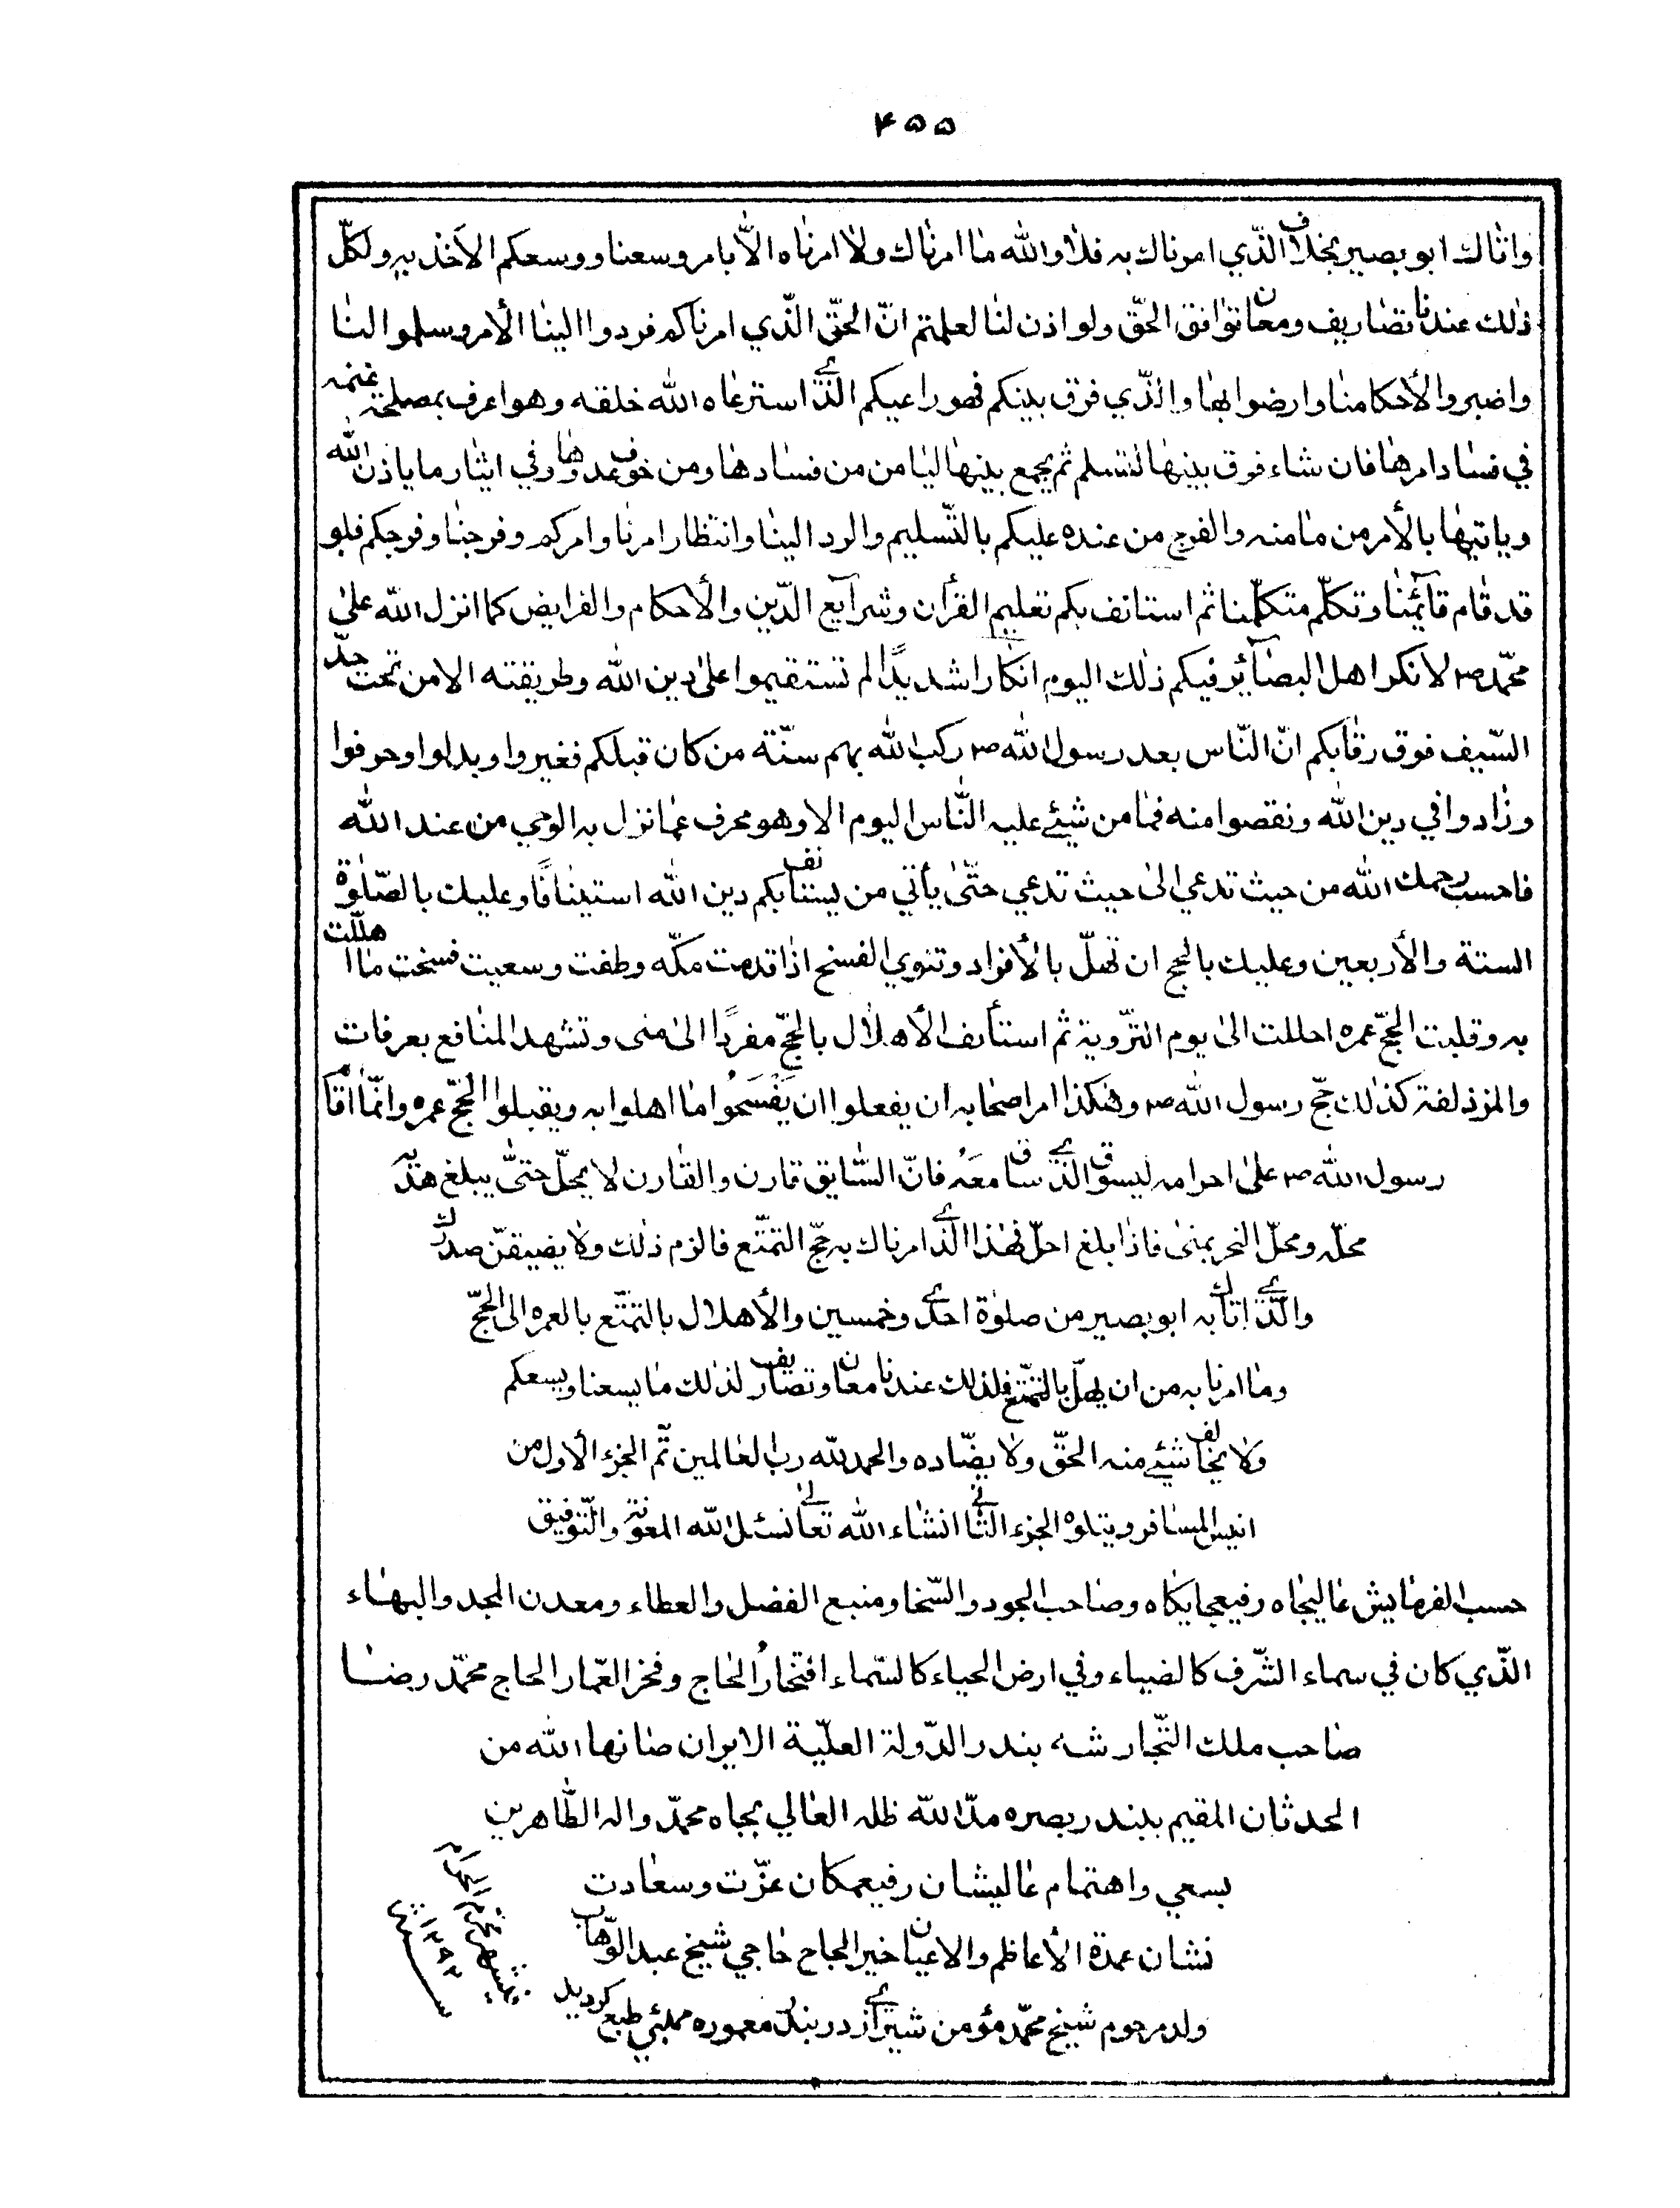 ۴۵۵
واتاك ابو بصير بخلاف الّذي امرناك به فلا والله ما امرناك ولا امرناه الّا بامر وسعنا ووسعكم الاخذ به ولكلّ
ذلك عندنا تصاريف ومعان توافق الحقّ ولو اذن لنا لعلمتم انّ الحقّ الّذي امرناكم فردوا الينا الأمر وسلموا النا
واصبروا لأحكامنا وارضوا بها والّذي فرّق بينكم فهو راعيكم الّذي استرعاه الله خلقه وهو اعرف بمصلحة غنمه
في فساد امرها فان شاء فرق بينها لتسلم ثم يجمع بينها ليامن من فسادها ومن خوف عدوها وفي اثار ما ياذن الله
وياتيها بالأمر من مامنه والفرج من عنده عليكم بالتّسليم والرد الينا وانتظار امرنا وامركم وفرجنا وفرجكم فلو
قد قام قآئمنا وتكلّم متكلّمنا ثم استانف بكم تعليم القرأن وشرآيع الدّين والأحكام والفرايض كما انزل الله على
محمّد ص لانكر اهل البصآئر فيكم ذلك اليوم انكارا شديدًا لم تستقيموا على دين الله وطريقته الا من تحت حدّ
السّيف فوق رقابكم انّ النّاس بعد رسول الله ص ركب الله بهم سنّة من كان قبلكم فغيروا وبدلوا وحرفوا
وزادوا في دين الله ونقصوا منه فما من شيئ عليه النّاس اليوم الا وهو محرف عما نزل به الوحي من عند الله
فاحسب رحمك الله من حيث تدعي الى حيث تدعي حتّى يأتي من يستانف بكم دين الله استينافًا وعليك بالصّلوة
الستة والأربعين وعليك بالحج ان تهلّ بالأفراد وتنوي الفسخ اذا قدمت مكّه وطفت وسعيت فسخت ما اهللت
به وقلبت الحجّ عمره احللت الى يوم التّروية ثم استأنف الأهلال بالحجّ مفردًا الى منى وتشهد المنافع بعرفات
والمزدلفة كذلك حجّ رسول الله ص وهكذا امر اصحابه ان يفعلوا ان يَفْسَخُوا ما اهلوا به ويقبلوا الحجّ عمره وانّما اقام
رسول الله ص على احرامه ليسوق الّذي ساق معَه فانّ السّايق قارن والقارن لا يحلّ حتّى يبلغ هديه
محلّه ومحلّ النحر بمنى فاذا بلغ احلّ فهذا الّذي امرناك به حجّ التمتّع فالزم ذلك ولا يضيقنّ صدرك
والّذي اتاك به ابو بصير من صلوة احدى وخمسين والأهلال بالتمتّع بالعمره الى الحجّ
وما امرنا به من ان يهلّ بالتمتّع فلذلك عندنا معان وتصاريف لذلك ما يسعنا ويسعكم
ولا يخالف شيئ منه الحقّ ولا يضّاده والحمد لله رب العالمين تمّ الجزء الأول من
انيس المسافر ويتلوه الجزء الثّاني انشاء الله تعالى نسئل الله المعونة والتّوفيق
حسب الفرمايش عاليجاه رفيعجايكاه وصاحب الجود والسّخا ومنبع الفضل والعطاء ومعدن المجد والبهاء
الذّي كان في سماء الشّرف كالضياء وفي ارض الحياء كالسّماء افتخارُ الحاج وفخر العمّار الحاج محمّد رضا
صاحب ملك التّجار شه بندر الدّولة العليّة الايران صانها الله من
الحدثان المقيم ببندر بصره مدّ الله ظله العالي بجاه محمّد واله الطّاهرين
بسعي واهتمام عاليشان رفيعمكان عزّت وسعادت
نشان عمدة الأعاظم والاعيان خير الحاج حاجي شيخ عبد الوّهاب
ولد مرحوم شيخ محمّد مؤمن شيرازي در بندر معموره ممبئي طبع كرديد
شهر محرم الحرام
سنة ١٢٩٢